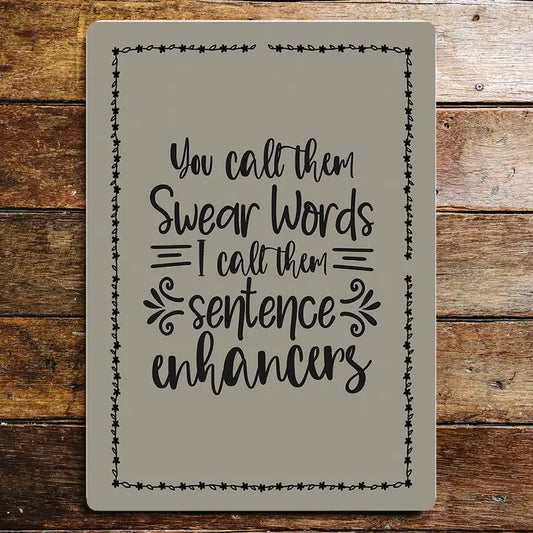 You call them
Swear Words
I call them
sentence
enhancers